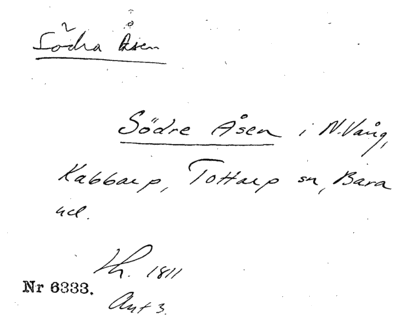 Södra Åsen
Södre Åsen i N.Vång,
Kabbarp, Tottarp sn, Bara
hd.
Kh. 1811
Nr 6333.
Ant 3.